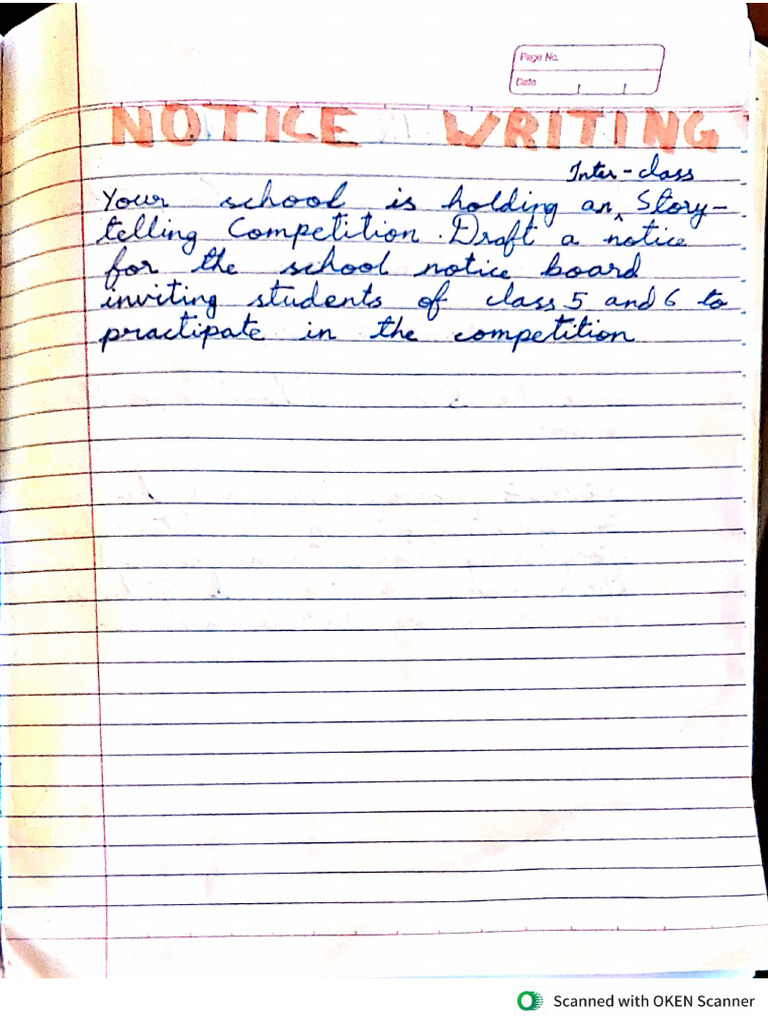 Page No.
Date
NOTICE WRITING
Inter-class
Your school is holding an ^ Story-
telling Competition. Draft a notice
for the school notice board
inviting students of class 5 and 6 to
practipate in the competition
Scanned with OKEN Scanner